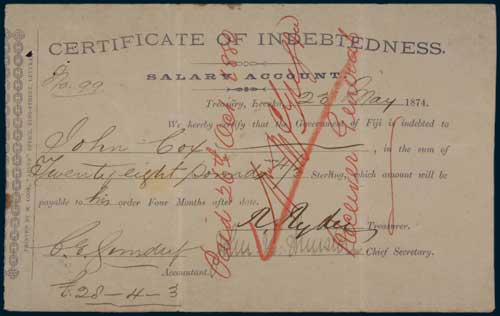 CERTIFICATE OF INDEBTEDNESS.
No. 99
SALARY ACCOUNT.
Treasury, Levuka, 23 May 1874.
We hereby certify that the Government of Fiji is indebted to
John Cox, in the sum of
Twenty eight pounds 4/3 Sterling, which amount will be
payable to his order Four Months after date.
R. Ryder Treasurer.
Chief Secretary.
Accountant.
£ 28-4-3
Paid 20th Oct 1880
Receiver General